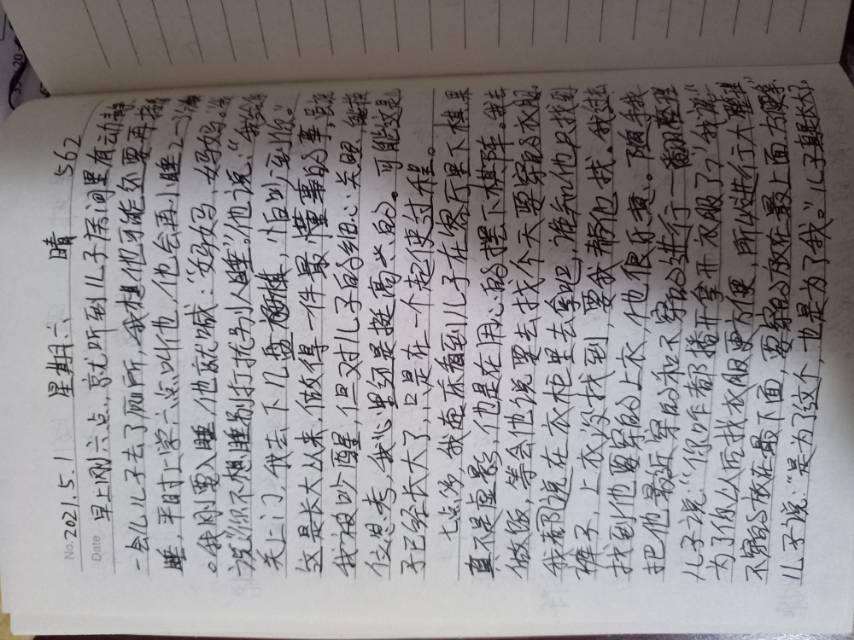 No. 2021.5.1 星期六 晴 562
Date 早上刚六点,就听到儿子房间里有动静
一会儿儿子去了厕所,我想他可能还要再接
睡,平时上学六点叫他,他会再小睡2一3分钟
。我刚要入睡,他就喊:"妈妈,妈妈。"我
说"你不想睡别打扰别人睡。"他说:"我给你
关上门,我去下几盘棋,怕吵到你。"
这是长大以来,做得一件最懂事的事,虽说
我被吵醒,但对儿子的细心、关照,能换
位思考,我心里还是挺高兴的。可能这是
子已经长大了,只是在一个起使过程。
七点多,我起床看到儿子在客厅里下棋,果
真不是虚影,他是在用心的摆下棋阵。我去
做饭,等会他说要去找个天要穿的衣服
我都说在衣柜里去拿吧,谁知他只找到
裤子,上衣没找到,要我帮他找。我过去
找到他要穿的上衣,他很乐意。随手我
把他最近穿的和不穿的进行一翻整理
儿子说:"你咋都播开拿开衣服了?"我说:"
为了你以后找衣服更方便,所以进行大整理
不穿的放在最下面,要穿的放在最上面方便拿
儿子说:"是为了这个,也是为了我。"儿子真是长大了